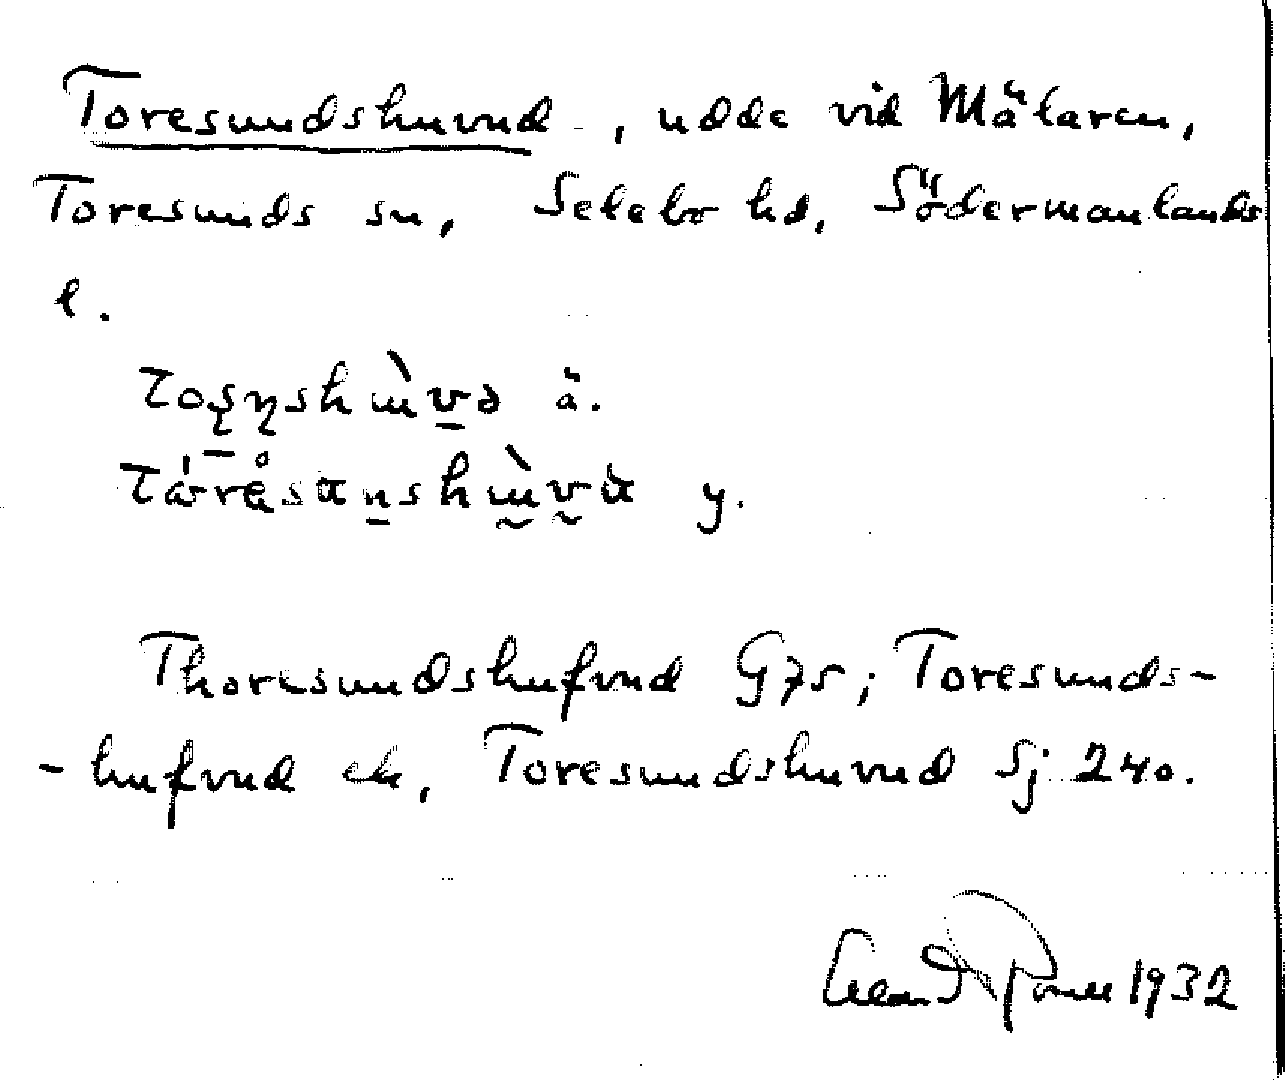 Toresundshuvud, udde vid Mälaren,
Toresunds sn, Selebo hd, Södermanlands
l.
ä.
y.
Thoresundshufvud G75; Toresunds-
-hufvud ek, Toresundshuvud Sj 240.
1932